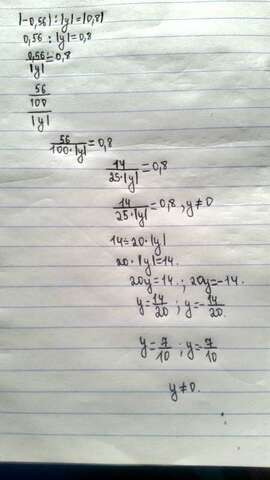 |-0,56| : |y| = |0,8|
0,56 : |y| = 0,8
0,56 / |y| = 0,8
56/100 / |y|
56 / 100·|y| = 0,8
14 / 25·|y| = 0,8
14 / 25·|y| = 0,8, y ≠ 0
14 = 20·|y|
20·|y| = 14.
20y = 14. ; 20y = -14.
y = 14/20 ; y = -14/20.
y = 7/10 ; y = 7/10
y ≠ 0.